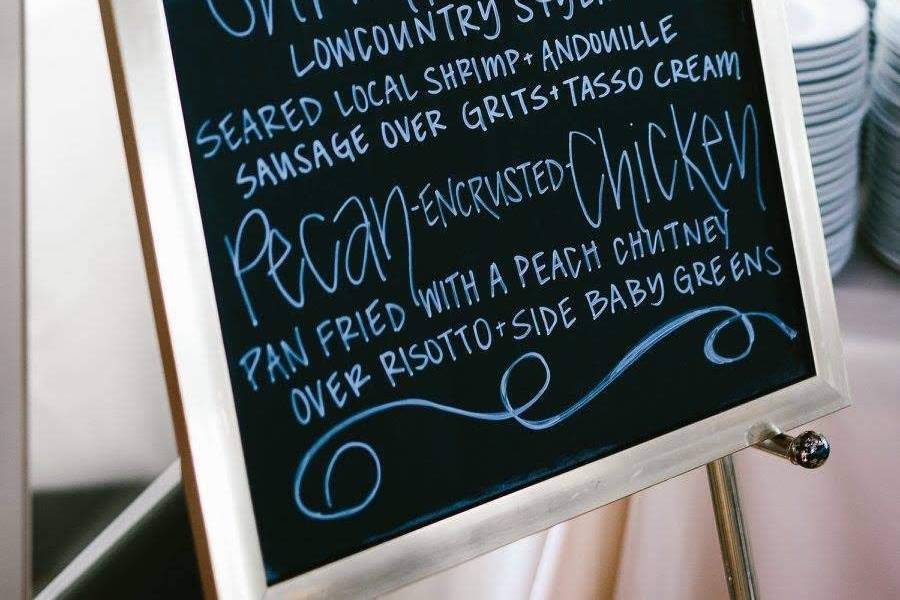 LOWCOUNTRY STYLE
SEARED LOCAL SHRIMP + ANDOUILLE
SAUSAGE OVER GRITS + TASSO CREAM
Pecan-ENCRUSTED-Chicken
PAN FRIED WITH A PEACH CHUTNEY
OVER RISOTTO + SIDE BABY GREENS